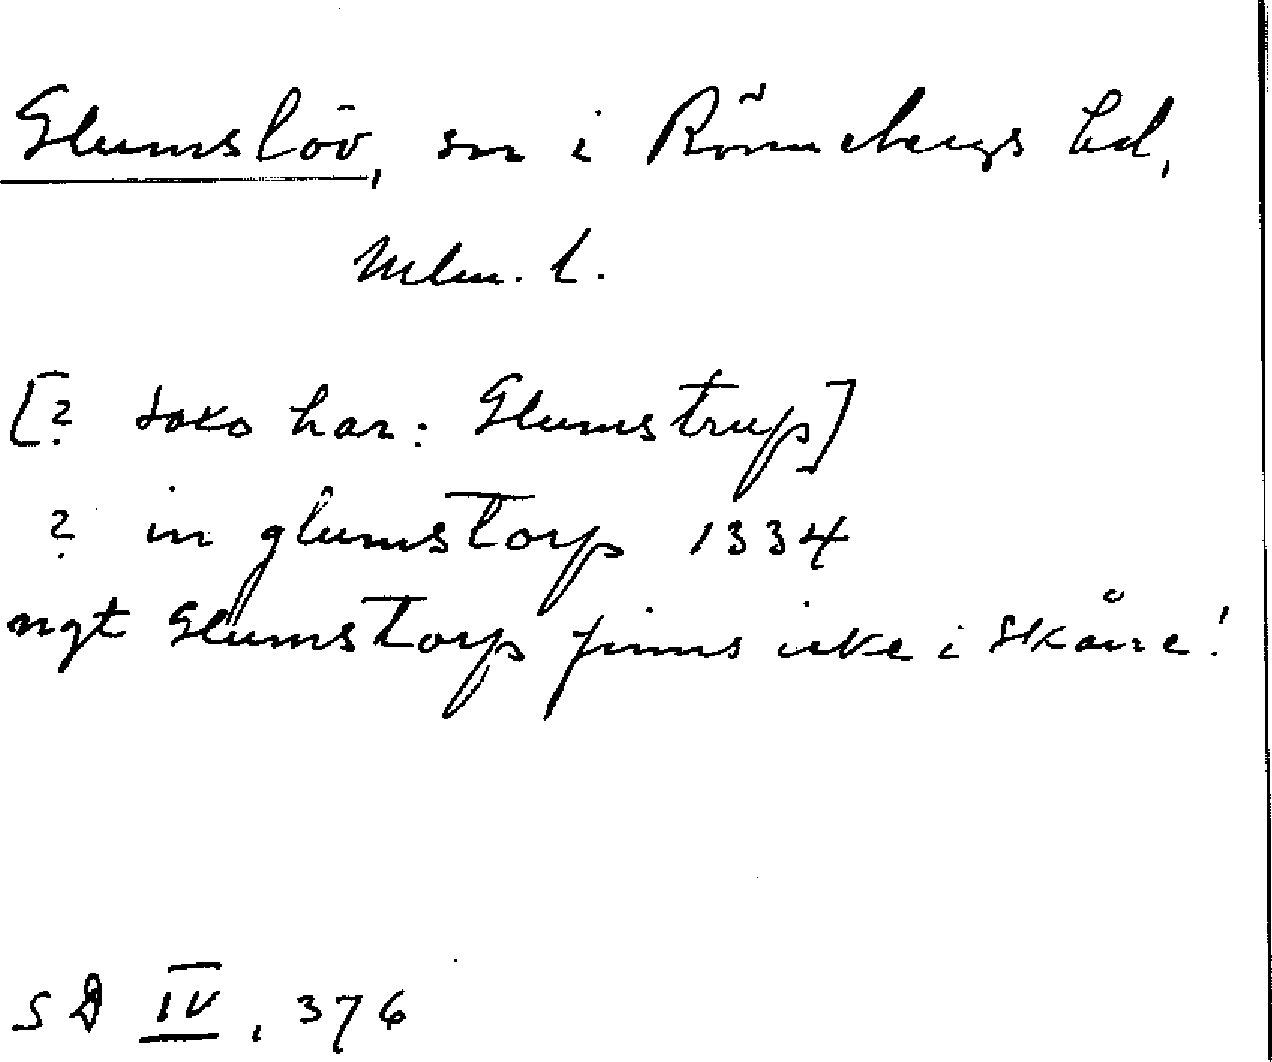 Glumslöv, sn i Rönnebergs hd,
Mlm. l.
[? SOKO har: Glumstrup]
? in glumstorp 1334
ngt Glumstorp finns icke i Skåne!
SD IV, 376